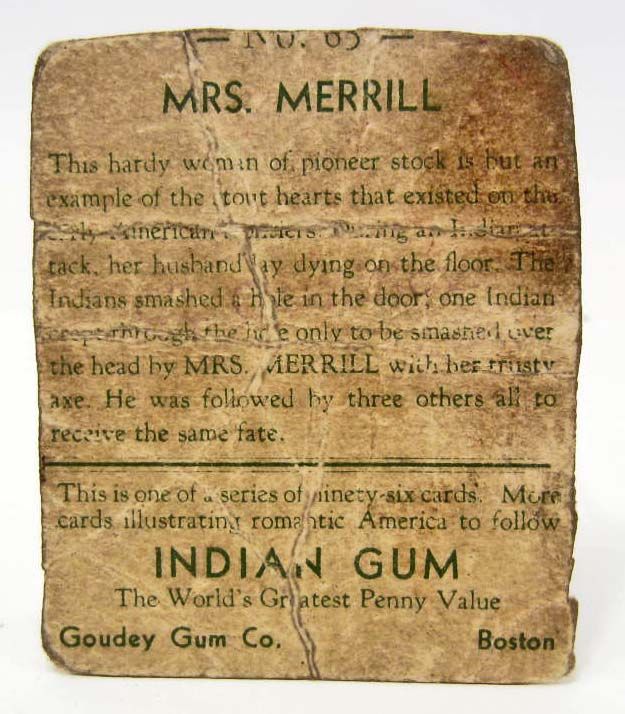 — NO. 65 —
MRS. MERRILL
This hardy woman of pioneer stock is but an
example of the stout hearts that existed on the
early American frontiers. During an Indian at-
tack, her husband lay dying on the floor. The
Indians smashed a hole in the door; one Indian
crept through the hole only to be smashed over
the head by MRS. MERRILL with her trusty
axe. He was followed by three others all to
receive the same fate.
This is one of a series of ninety-six cards. More
cards illustrating romantic America to follow
INDIAN GUM
The World's Greatest Penny Value
Goudey Gum Co. Boston